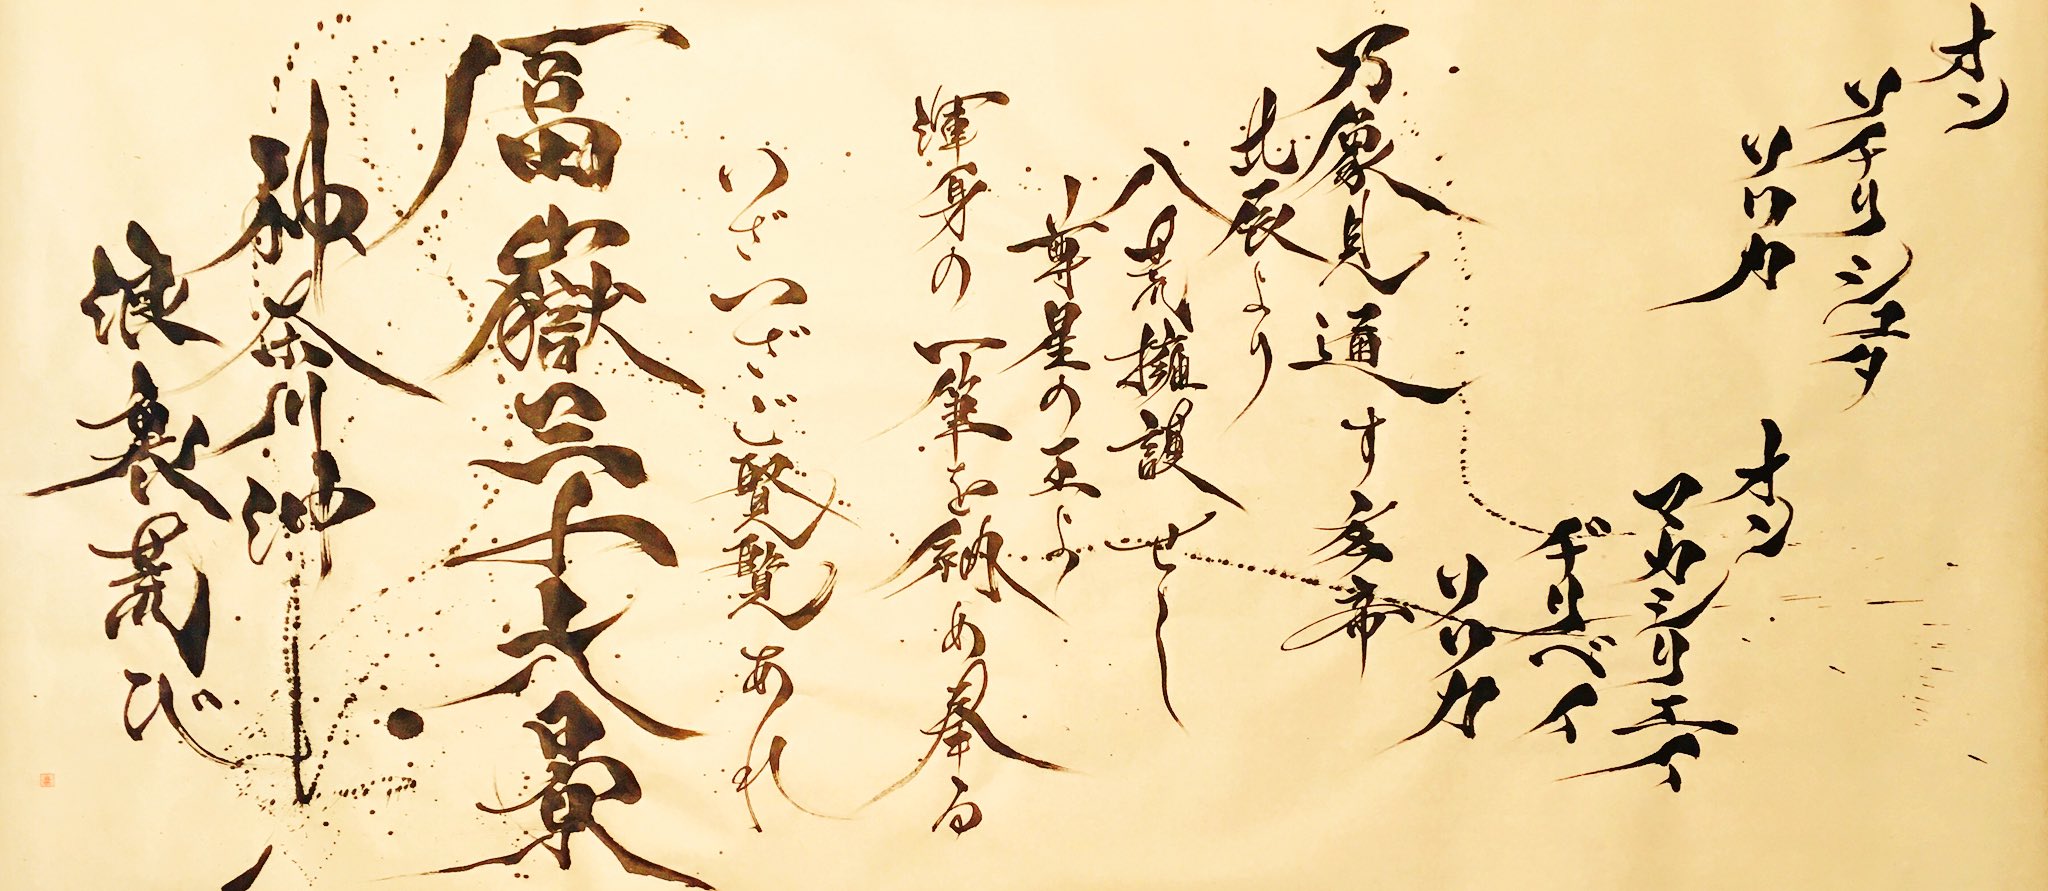 オン
ソチリシュタ
ソワカ
オン
マカシリエイ
ヂリベイ
ソワカ
万象見通す玄帝
北辰より
八荒擁護せし
尊星の王よ
渾身の一筆を納め奉る
いざいざご賢覧あれ
冨嶽三十六景
神奈川沖
浪裏荒び